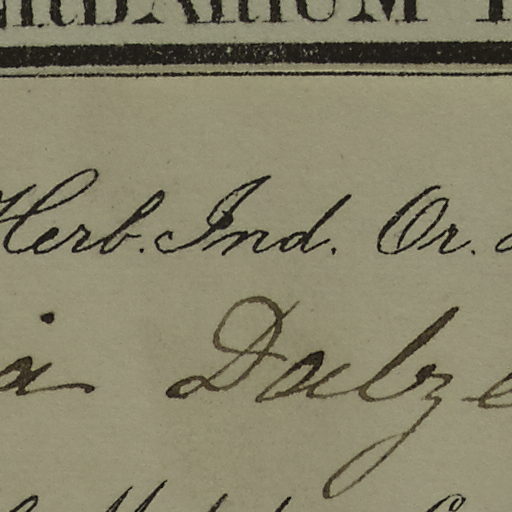 HERBARIUM
Herb. Ind. Or.
ia Dalze